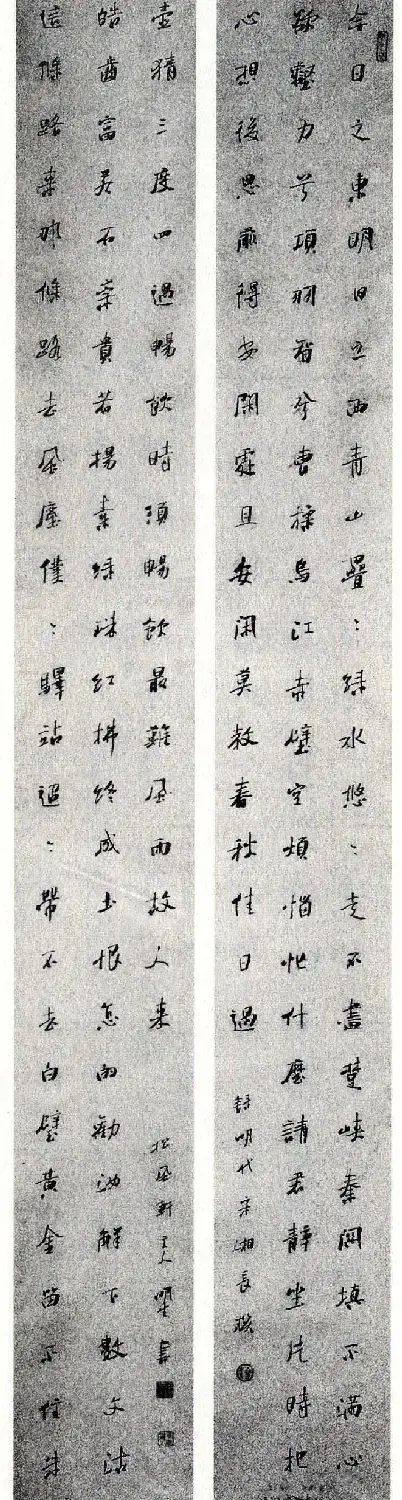 今日之東明日之西青山疊〻綠水悠〻走不盡楚峽秦關填不滿心
欲壑力兮項羽智兮曹操烏江赤壁空煩惱忙什麼請君靜坐片時把
心想後思前得安閑處且安閑莫教春秋佳日過
錄明代宋湘長聯
這條路來那條路去風塵僕〻驛站迢〻帶不去白璧黃金留不住朱
皓齒富若石崇貴若楊素綠珠紅拂終成土恨怎的勸汝解下數文沽
壺猜三度四遇暢飲時須暢飲最難風雨故人來
松風軒主人 書